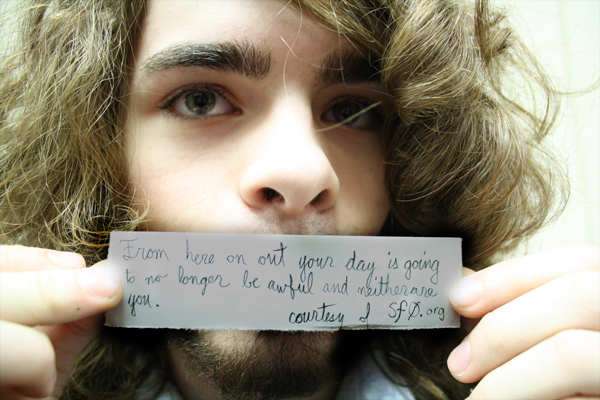 From here on out your day is going
to no longer be awful and neither are
you.
courtesy of SFØ.org